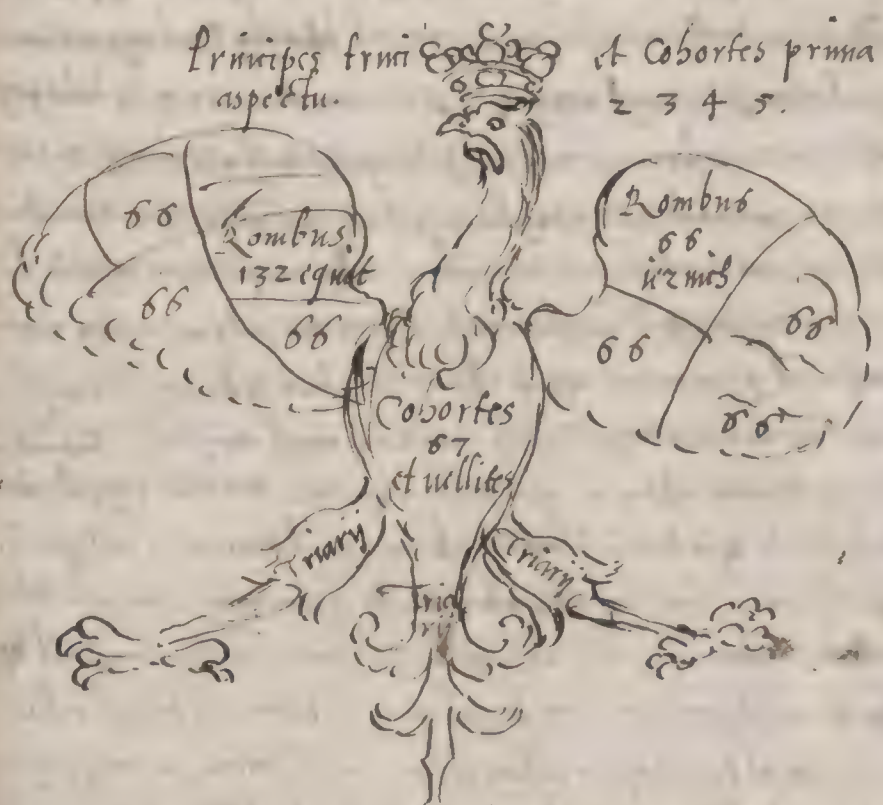 Principes truci
aspectu.
et Cohortes prima
2 3 4 5.
66
Rombus
132 equit
66
66
Rombus
66
66
66
66
Cohortes
67
et vellites
Triarij
Triarij
Tria
rij